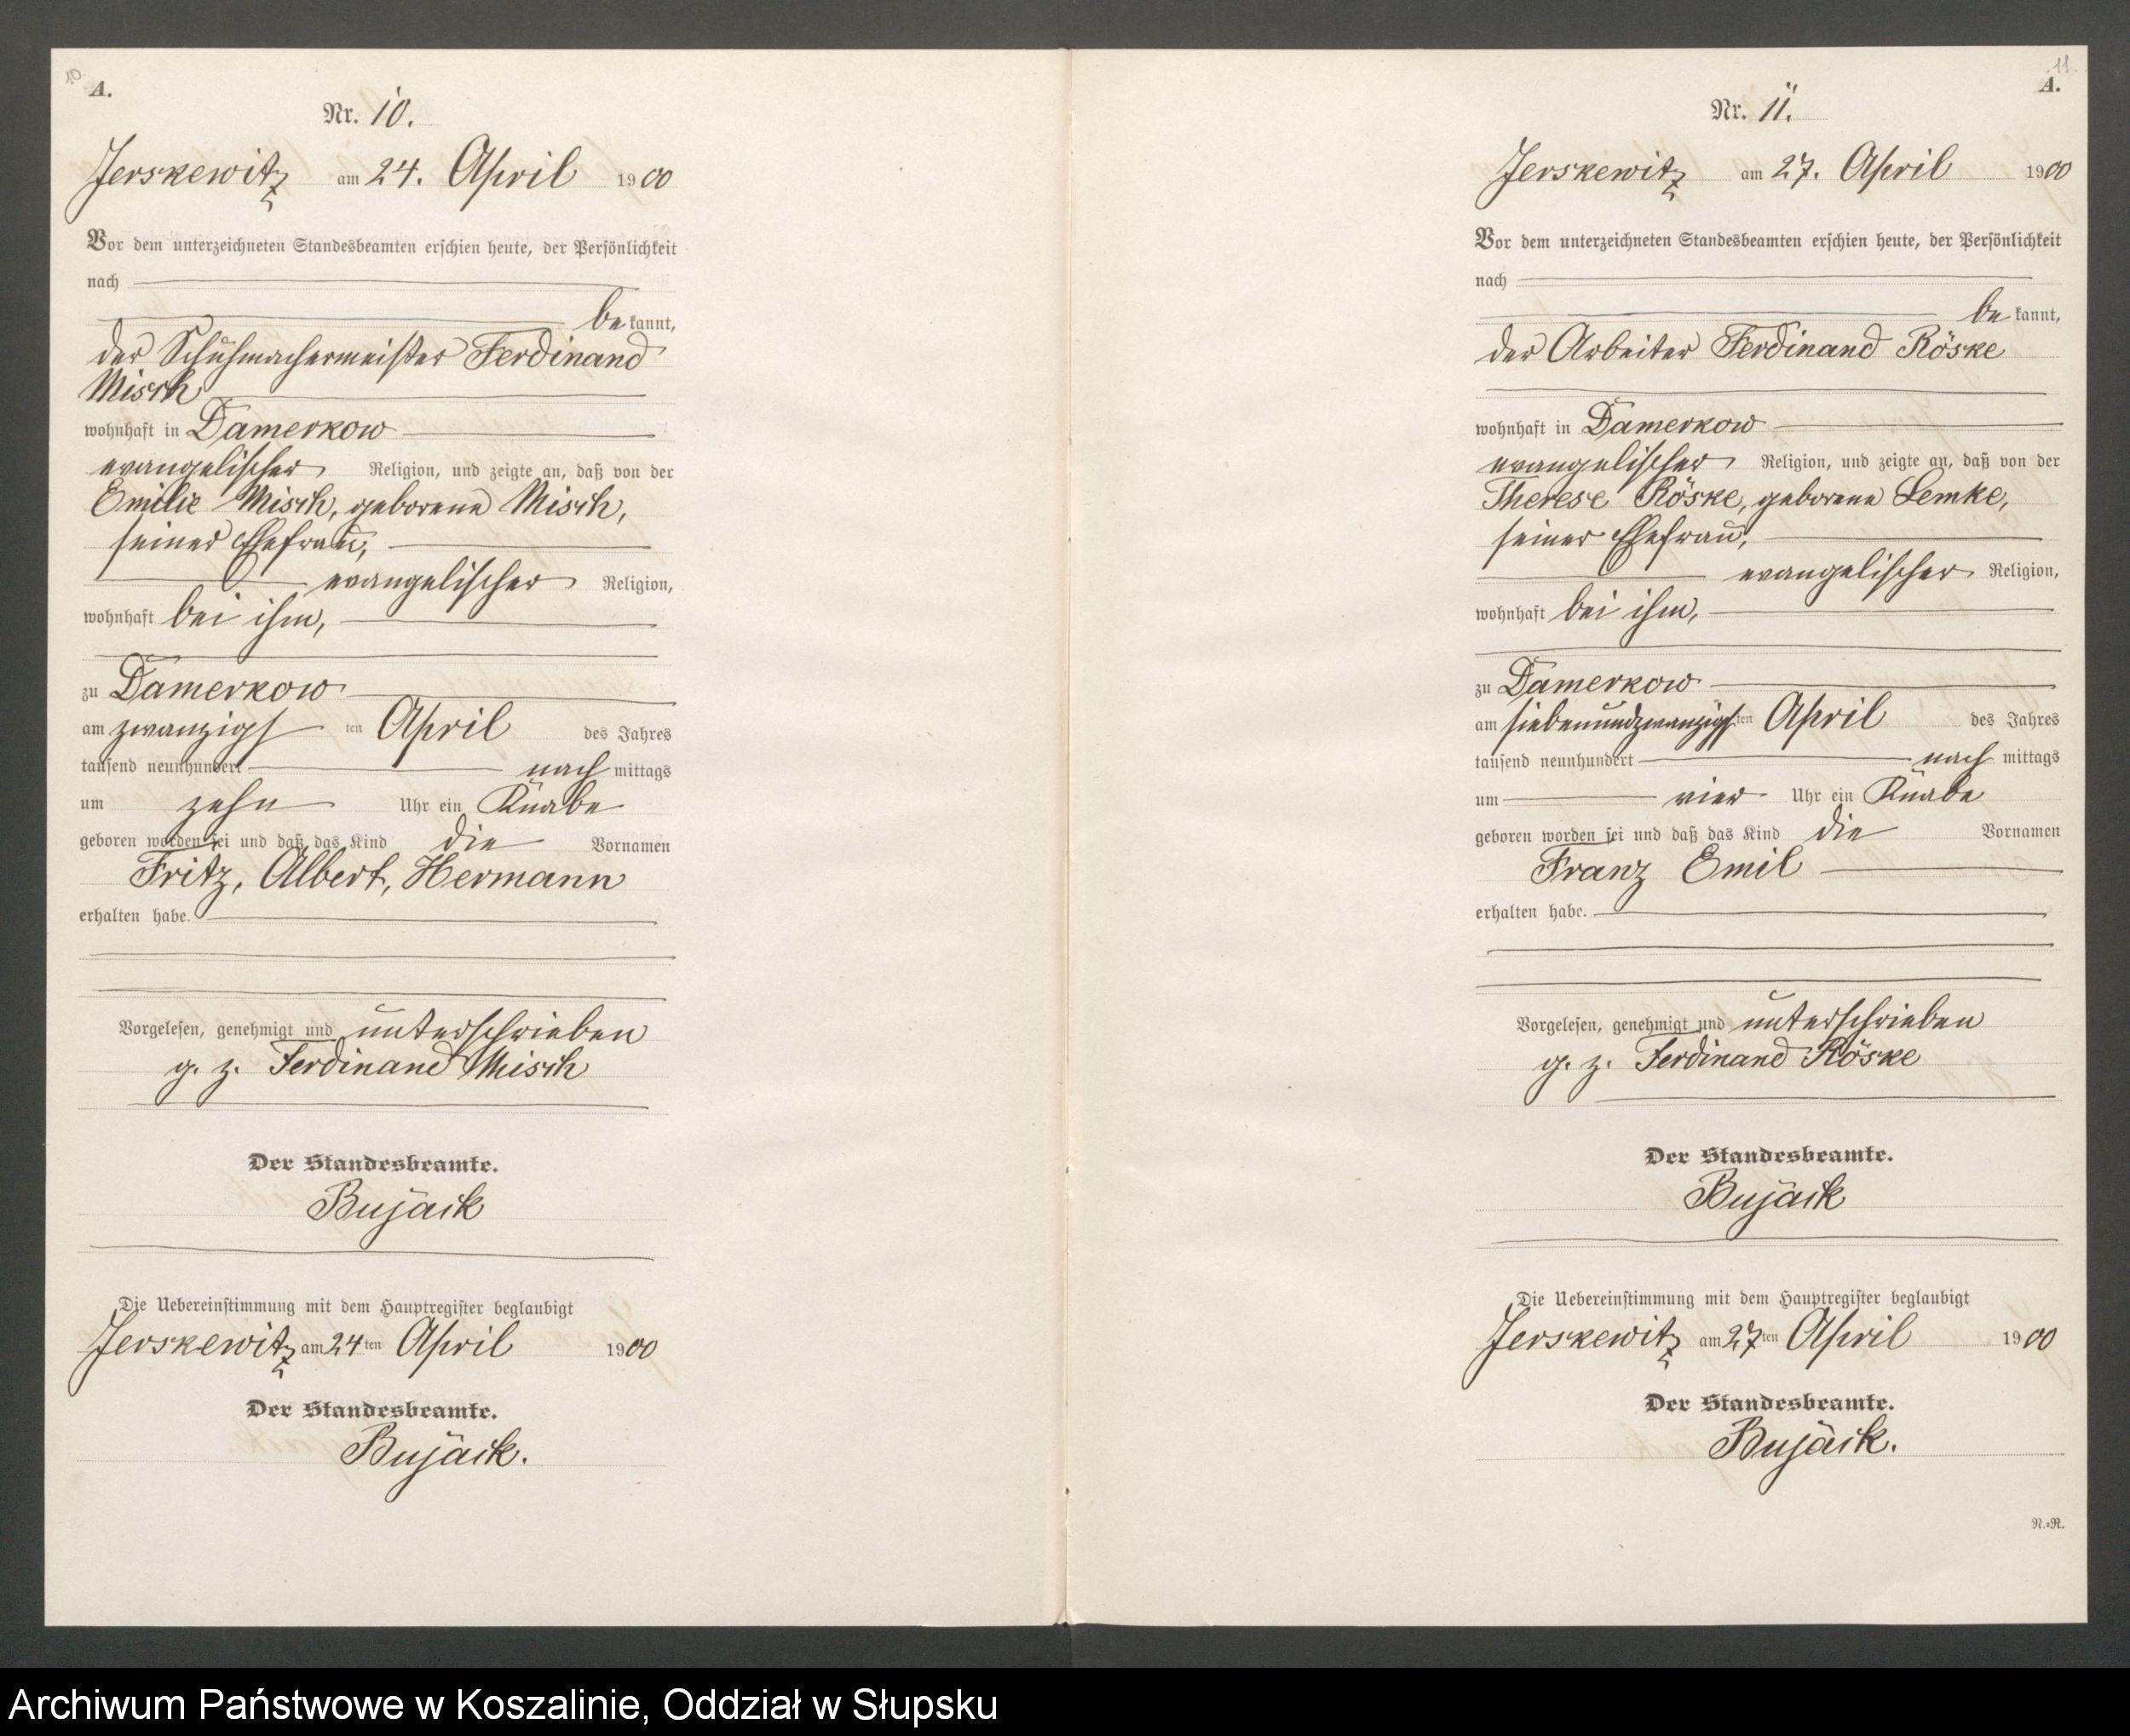 10
A.
Nr. 10.
Jerskewitz am 24. April 1900
Vor dem unterzeichneten Standesbeamten erschien heute, der Persönlichkeit
nach
be kannt,
der Schuhmachermeister Ferdinand
Misch
wohnhaft in Damerkow
evangelischer Religion, und zeigte an, daß von der
Emilie Misch, geborene Misch,
seiner Ehefrau,
evangelischer Religion,
wohnhaft bei ihm,
zu Damerkow
am zwanzigs ten April des Jahres
tausend neunhundert nach mittags
um zehn Uhr ein Knabe
geboren worden sei und daß das Kind die Vornamen
Fritz, Albert, Hermann
erhalten habe.
Vorgelesen, genehmigt und unterschrieben
g. z. Ferdinand Misch
Der Standesbeamte.
Bujack
Die Uebereinstimmung mit dem Hauptregister beglaubigt
Jerskewitz am 24 ten April 1900
Der Standesbeamte.
Bujack.
11.
A.
Nr. 11.
Jerskewitz am 27. April 1900
Vor dem unterzeichneten Standesbeamten erschien heute, der Persönlichkeit
nach
be kannt,
der Arbeiter Ferdinand Röske
wohnhaft in Damerkow
evangelischer Religion, und zeigte an, daß von der
Therese Röske, geborene Lemke,
seiner Ehefrau,
evangelischer Religion,
wohnhaft bei ihm,
zu Damerkow
am siebenundzwanzigs ten April des Jahres
tausend neunhundert nach mittags
um vier Uhr ein Knabe
geboren worden sei und daß das Kind die Vornamen
Franz Emil
erhalten habe.
Vorgelesen, genehmigt und unterschrieben
g. z. Ferdinand Röske
Der Standesbeamte.
Bujack
Die Uebereinstimmung mit dem Hauptregister beglaubigt
Jerskewitz am 27 ten April 1900
Der Standesbeamte.
Bujack.
N.=R.
Archiwum Państwowe w Koszalinie, Oddział w Słupsku